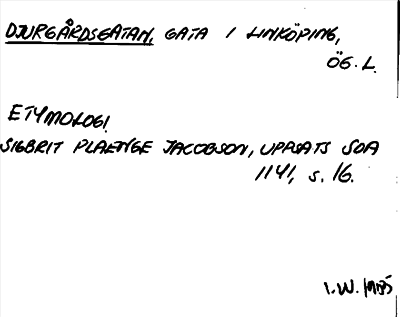 DJURGÅRDSGATAN, GATA I LINKÖPING,
ÖG. L.
ETYMOLOGI
SIGBRIT PLAENGE JACOBSON, UPPSATS SOA
1141, s. 16.
I.W. 1985